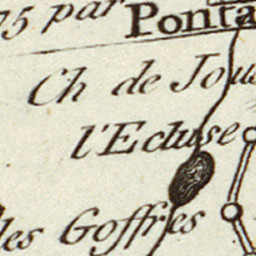 75 par Ponta
Ch de Joux
l'Ecluse
les Goffres